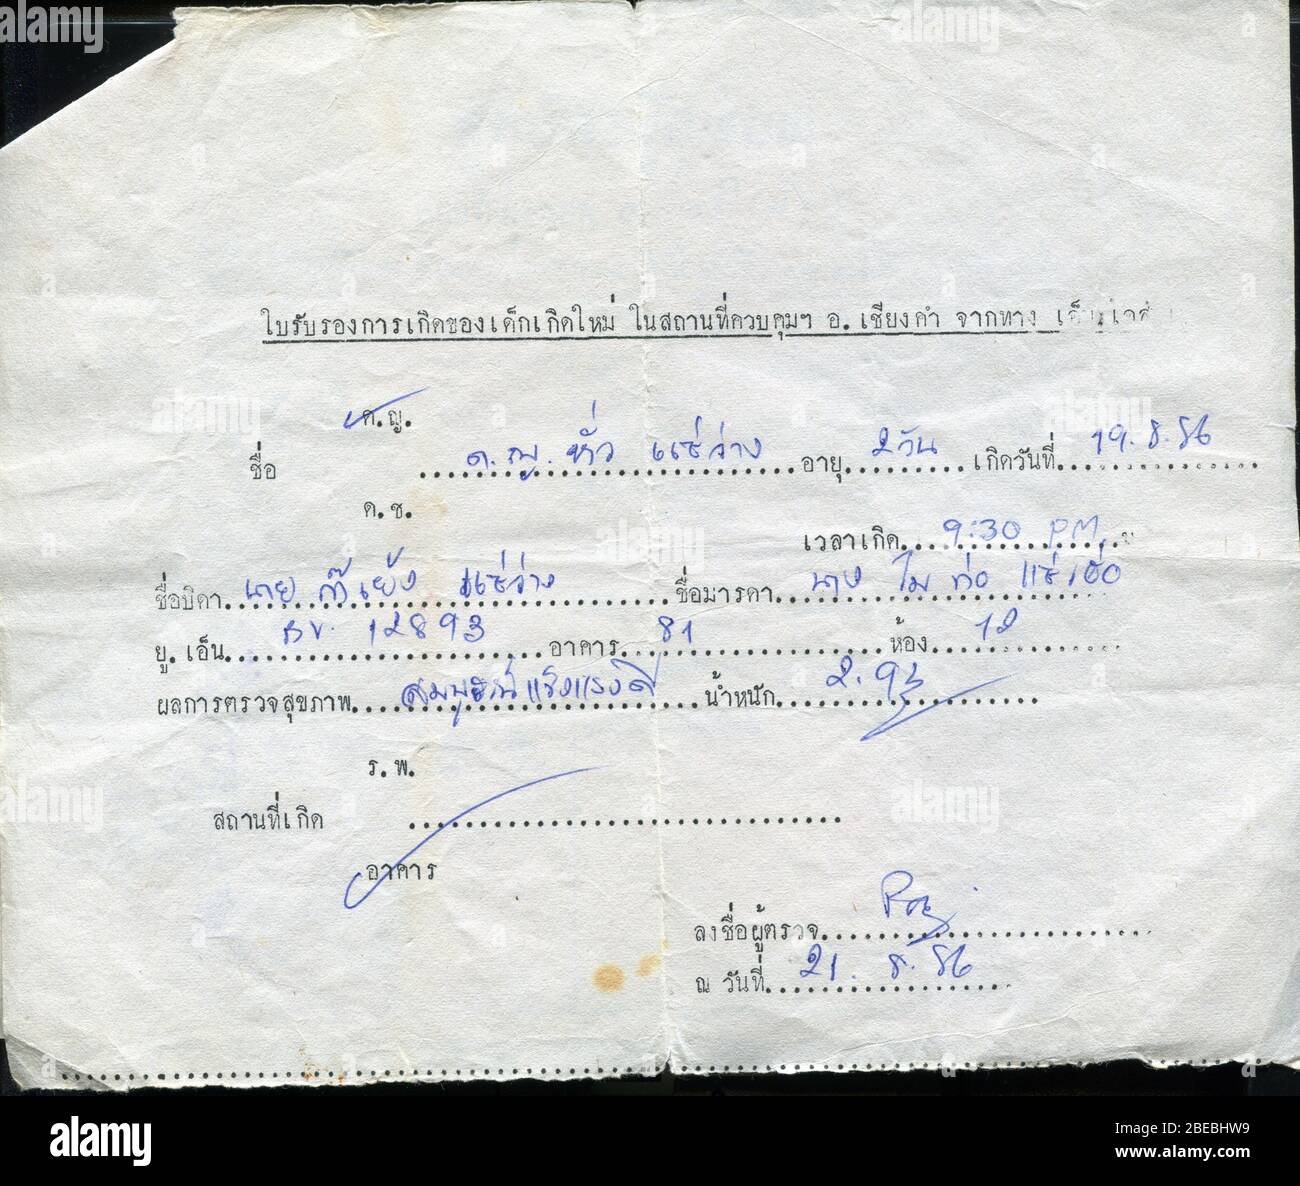 ใบรับรองการเกิดของเด็กเกิดใหม่ ในสถานที่ควบคุมฯ อ. เชียงคำ จากทาง
ด.ญ.
ชื่อ ด.ญ. หั่ว แซ่ว่าง อายุ 2 วัน เกิดวันที่ 19.8.86
ด.ช.
เวลาเกิด 9:30 PM.
ชื่อบิดา นาย ก๊ เย้ง แซ่ว่าง ชื่อมารดา นาง ไม ก่อ แซ่เฮ่อ
ยู.เอ็น BV. 12893 อาคาร 81 ห้อง 12
ผลการตรวจสุขภาพ สมบูรณ์แข็งแรงดี น้ำหนัก 2.9
ร.พ.
สถานที่เกิด
อาคาร
ลงชื่อผู้ตรวจ
ณ วันที่ 21. 8. 86
alamy
Image ID: 2BEBHW9
www.alamy.com